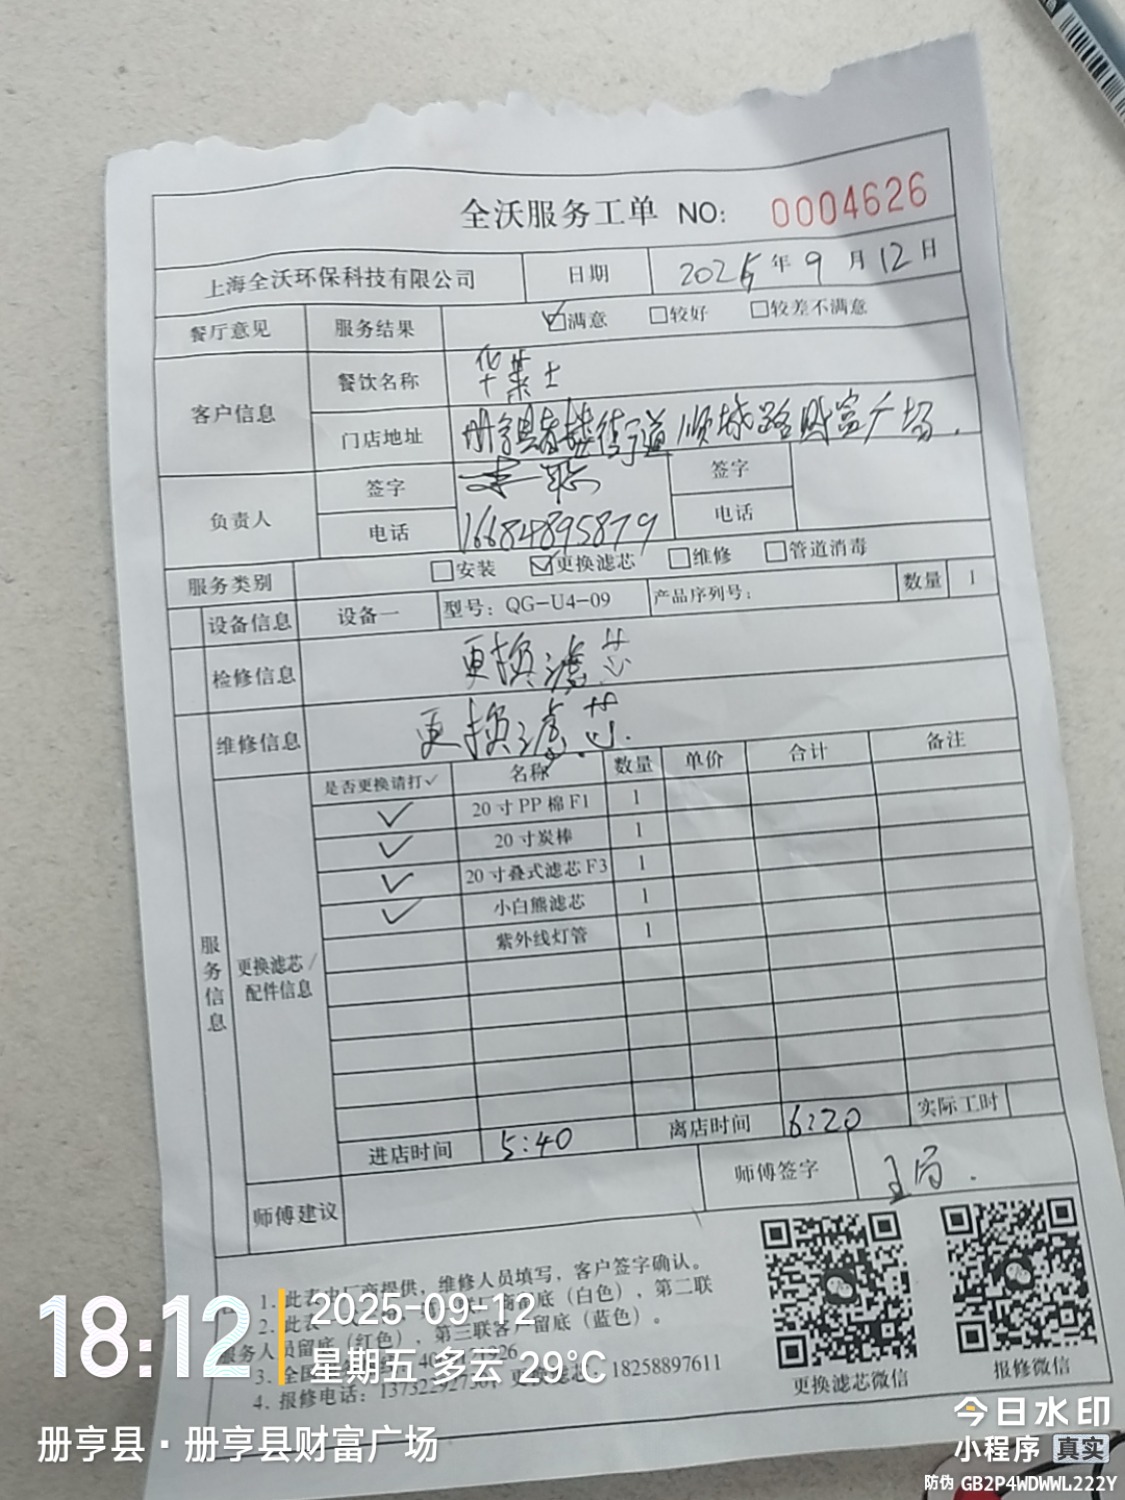 全沃服务工单 NO: 0004626
上海全沃环保科技有限公司 日期 2025年9月12日
餐厅意见 服务结果 ☑满意 □较好 □较差不满意
客户信息 餐饮名称 华莱士
门店地址 册亨县者楼街道顺城路财富广场.
负责人 签字 签字
电话 16684895879 电话
服务类别 □安装 ☑更换滤芯 □维修 □管道消毒
设备信息 设备一 型号: QG-U4-09 产品序列号: 数量 1
检修信息 更换滤芯
维修信息 更换滤芯.
服务信息
更换滤芯/配件信息
是否更换请打✓ 名称 数量 单价 合计 备注
✓ 20寸PP棉F1 1
✓ 20寸炭棒 1
✓ 20寸叠式滤芯F3 1
✓ 小白熊滤芯 1
紫外线灯管 1
进店时间 5:40 离店时间 6:20 实际工时
师傅建议 师傅签字
1. 此表由厂商提供，维修人员填写，客户签字确认。
2. 此表 留底（白色），第二联
服务人员留底（红色），第三联客户留底（蓝色）。
3. 全国
4. 报修电话: 18258897611
更换滤芯微信 报修微信
18:12 2025-09-12
星期五 多云 29℃
册亨县·册亨县财富广场
今日水印
小程序 真实
防伪 GB2P4WDWWL222Y